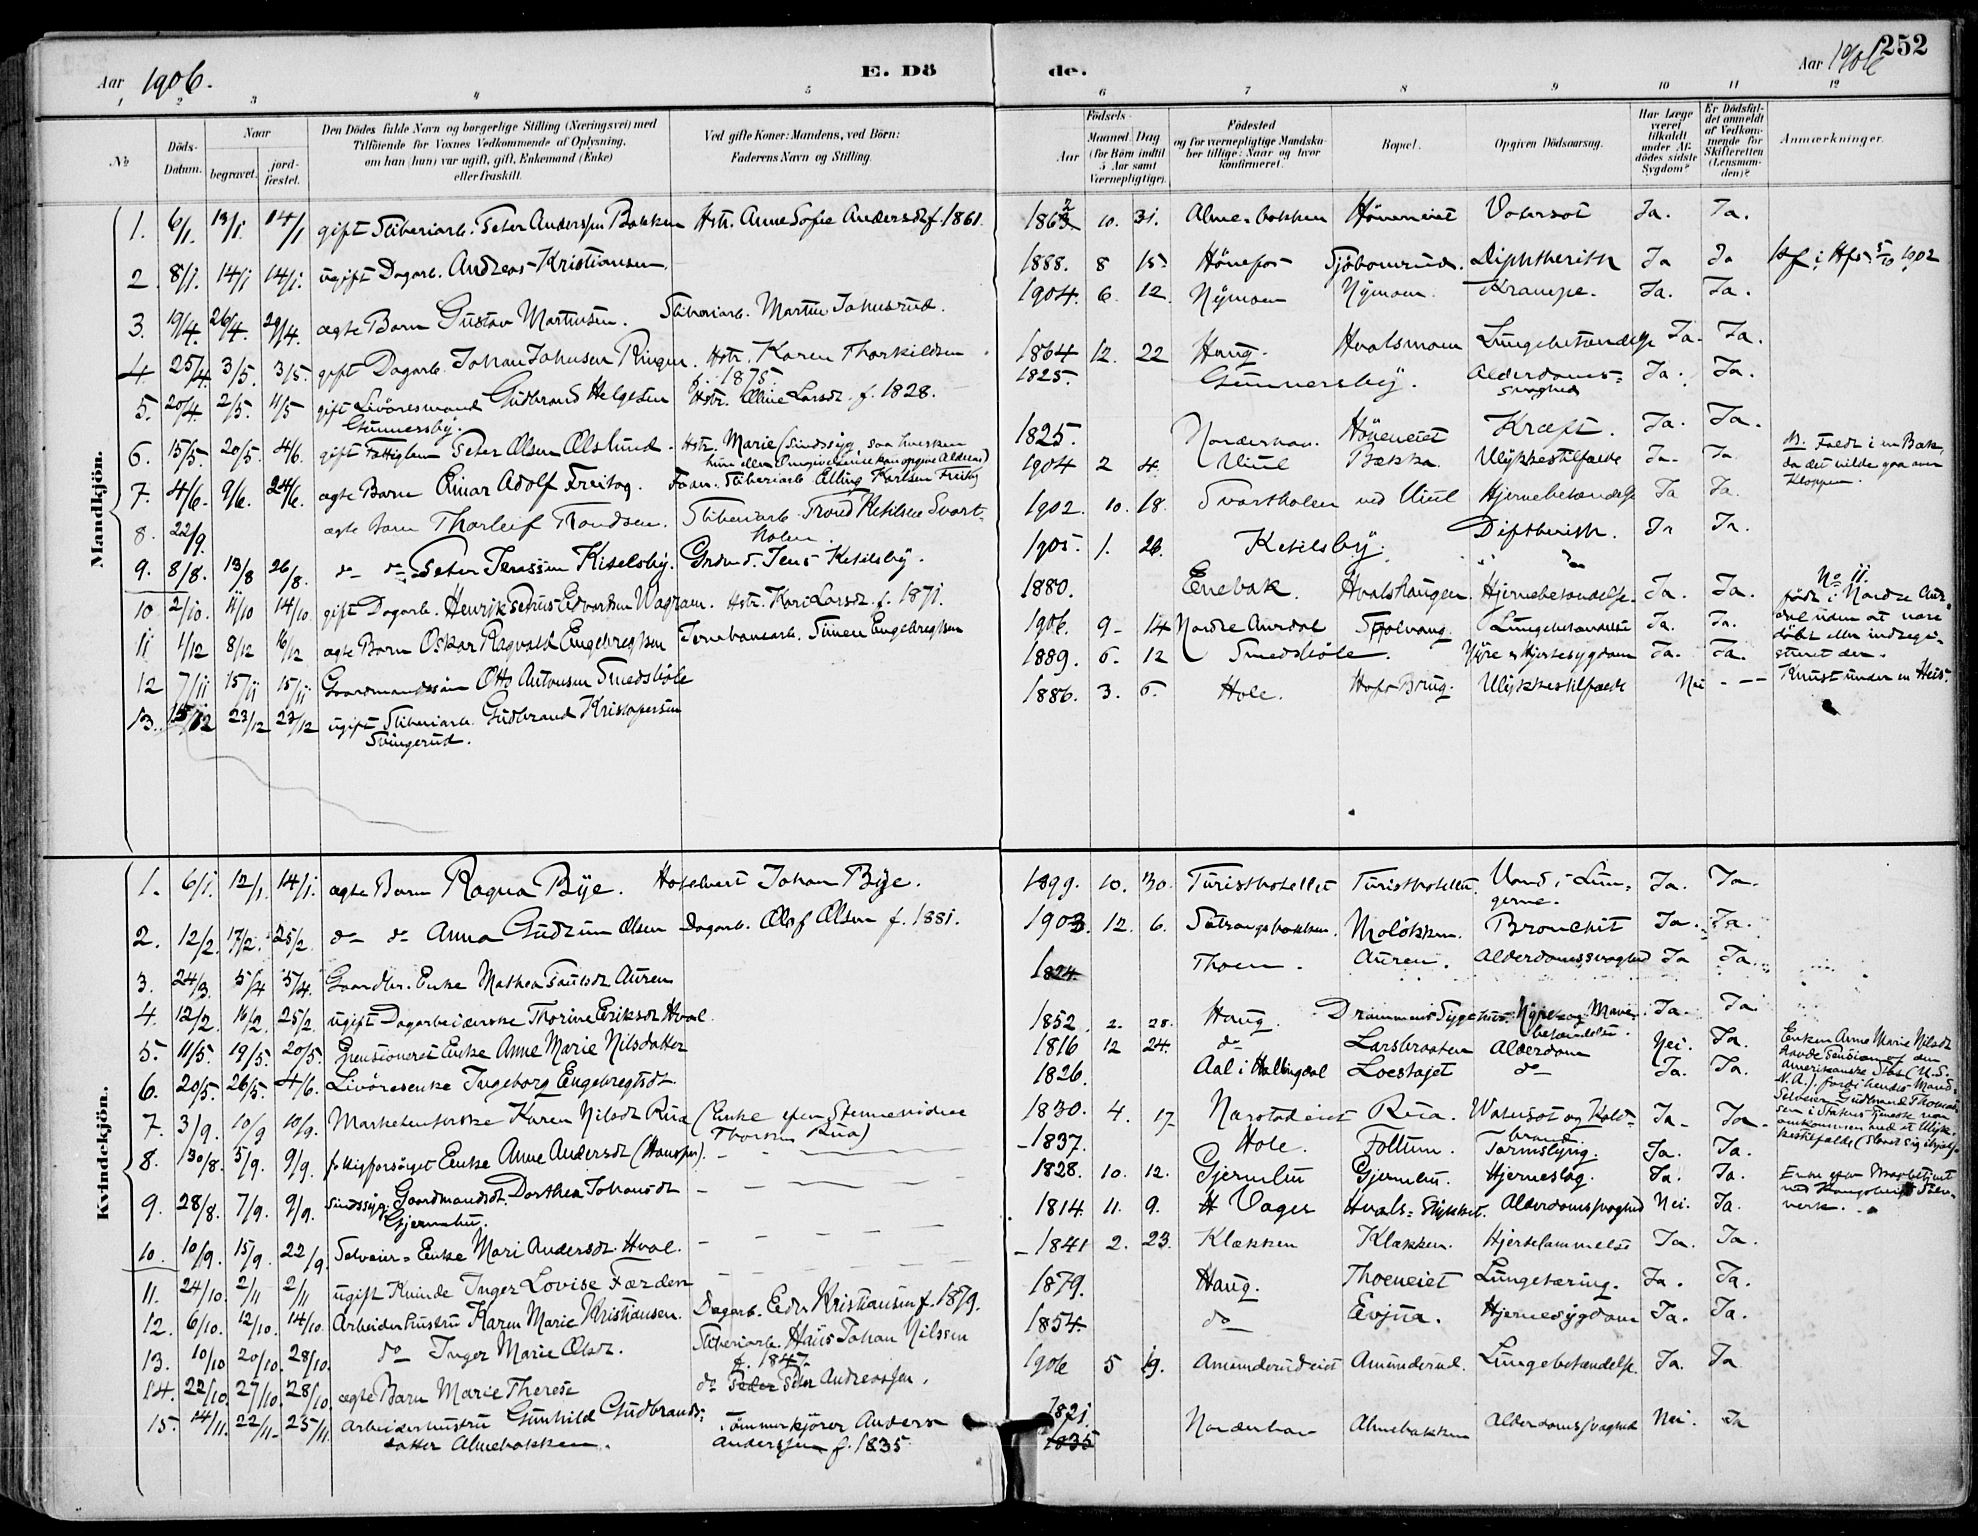 Aar 1906.
E. Dö
de.
Aar 1906
252
1 2 3 4 5 6 7 8 9 10 11 12
No
Döds-Datum.
Naar
begravet.
jord-fæstet.
Den Dödes fulde Navn og borgerlige Stilling (Næringsvei) med
Tilföiende for Voxnes Vedkommende af Oplysning,
om han (hun) var ugift, gift, Enkemand (Enke)
eller fraskilt.
Ved gifte Koner: Mandens, ved Börn:
Faderens Navn og Stilling.
Födsels-
Aar
Maaned Dag
(for Börn indtil
5 Aar samt
Værnepligtige).
Födested
og for værnepligtige Mandskaber tillige: Naar og hvor
konfirmeret.
Bopæl.
Opgiven Dödsaarsag.
Har Læge
været
tilkaldt
under Afdödes sidste
Sygdom?
Er Dödsfaldet anmeldt
af Vedkommende for
Skifteretten
(Lensmanden)?
Anmærkninger.
Mandkjön.
1. 6/1. 13/1. 14/1 gift Sliberiarb. Peter Anderssen Bakken Hstr. Anne Sofie Andersdt f. 1861. 1862 10. 31. Almebakken Hönneneiet Vatersot Ja. Ja.
2. 8/1. 14/1 14/1. ugift Dagarb. Andreas Kristiansen 1888. 8 15. Hönefos Sjöbomrud. Diphtherith Ja Ja Kf. i Hfos 5/10 1902
3. 19/4. 26/4. 29/4. ægte Barn Gustav Martinsen. Sliberiarb. Martin Johnsrud. 1904. 6. 12. Nymoen Nymoen. Krampe. Ja. Ja.
4. 25/4. 3/5. 3/5. gift Dagarb. Johan Johnsen Ringen. Hstr. Karen Thorkildsen f. 1875. 1864 12. 22 Haug. Hvalsmoen Lungebetændelse Ja. Ja.
5. 20/4. 2/5. 11/5 gift Livöresmand Gudbrand Helgesen Gunnersby. Hstr. Oline Larsdt. f. 1828. 1825. Gunnersby. Alderdomssvaghed Ja. Ja.
6. 15/5. 20/5. 4/6. gift Fattiglem Peter Olsen Olslund. Hstr. Marie (Sindssyg, saa hverken hun eller Omgivelserne kan opgive Alderen) 1825. Norderhov. Höneneiet Kræft. Ja. Ja.
7. 4/6. 9/6. 24/6. ægte Barn Einar Adolf Freitag. Fader. Sliberiarb. Elling Karlsen Freitag 1904 2 4. Viul Bækka. Ulykkestilfælde Ja. Ja. N. Faldt i en Bæk, da det vilde gaa over Kloppen.
8. 22/9. ægte Barn Thorleif Trondsen. Sliberiarb. Trond Ketilsen Svartholen. 1902. 10. 18. Svartholen ved Viul Hjernebetændelse Ja Ja.
9. 8/8. 13/8 26/8. do do Peter Jenssen Kitelsby. Grdmd. Jens Ketilsby. 1905. 1. 26. Ketilsby. Diftherith. Ja Ja.
10 2/10. 11/10 14/10. gift Dagarb. Henrik Petrus Edvardsen Wagram. Hstr. Kari Larsdt. f. 1871. 1880. Enebak. Hvalshaugen Hjernebetændelse. Ja. Ja.
11 1/12 8/12 16/12 ægte Barn Oskar Ragvald Engebregtsen Jernbanearb. Simen Engebregtsen 1906. 9 - 14 Nordre Aurdal Solvang Lungebetændelse Ja. Ja. No 11. född i Nordre Aurdal uden at være döbt eller indregistreret der.
12 7/11 15/11 15/11 Gaardmandssön Otto Antonsen Smedsböle 1889. 6. 12 Smedsböle. Nyre & Hjertesygdom Ja. Ja.
13. 15/12 23/12 23/12 ugift Sliberiarb. Gudbrand Kristofersen Svingerud. 1886. 3. 6. Hole. Hofs Brug. Ulykkestilfælde Nei - - Knust under en Heis.
Kvindekjön.
1. 6/1. 12/1. 14/1. ægte Barn Ragna Bye. Hotelvert Johan Bye. 1899. 10. 30. Turisthotellet Turisthotellet. Vand i Lungerne. Ja. Ja.
2. 12/2. 17/2. 25/2 do do Anna Gudrun Olsen Dagarb. Olaf Olsen f. 1881. 1903. 12. 6. Sætrangsbakken. Molökken. Bronchit Ja. Ja.
3. 24/3. 5/4 5/4. Gaardbr. Enke Mathea Paulsdt Auren 1824 Thoen. Auren. Alderdomssvaghed Ja Ja.
4. 12/2. 16/2. 25/2. ugift Dagarbeiderske Thorine Eriksdt Hval. 1852. 2. 28. Haug. Drammens Sygehus. Nyre og Mavebetændelse. Ja. Ja
5. 11/5. 19/5. 20/5. Pensioneret Enke Anne Marie Nilsdatter 1816 12 24. do Larsbraaten Alderdom Nei. Ja. Enken Anne Marie Nilsdt havde Pension af den amerikanske Stat (U.S. N.A.), fordi hendes Mand, Selveier Gudbrand Thomassen i Statens Tjeneste var omkommen ved et Ulykkestilfælde
6. 20/5. 26/5. 4/6. Livöresenke Ingeborg Engebregtsdt. 1826. Aal i Hallingdal Loestajet do Ja. Ja.
7. 3/9. 10/9 10/9. Marketenterske Karen Nilsdt Rua (Enke efter Stenarbeider Thorsten Rua) 1830. 4. 17. Nærstadeiet Rua. Watersot og Koldbrand. Ja. Ja.
8. 30/8. 5/9. 9/9. fattigforsörget Enke Anne Andersdt (Hansfos). 1837. Hole. Follum. Tarmslyng. Ja. Ja.
9. 28/8. 7/9. 9/9. sindssyg Gaardmandsdt. Dorthea Johansdt Gjermbu. 1828. 10. 12. Gjermbu Gjermbu. Hjerneslag. Ja. Ja. Enke efter Arbeider ved Kongsberg Sølvverk.
10. 10/9. 15/9. 22/9. Selveier-Enke Mari Andersdt. Hval. 1814. 11. 9. Vager Hvals-Stykket. Alderdomssvaghed Nei. Ja.
11. 24/10. 2/11 2/11 ugift Kvinde Inger Lovise Færden 1841 2. 23. Klækken Klækken. Hjertelammelse Ja. Ja.
12. 6/10. 12/10. 14/10. Arbeiderhustru Karen Marie Kristiansen. Dagarb. Edv. Kristiansen f. 1879. 1879. Haug. Thoeneiet Lungetæring. Ja. Ja.
13. 10/10 20/10. 28/10. do Inger Marie Olsdt. Sliberiarb. Hans Johan Nilssen f. 1847. 1854. do Evjua. Hjernesygdom Ja. Ja.
14. 22/10. 27/10. 28/10. ægte Barn Marie Therese do Peder Peter Andreassen. 1906 5 19. Amunderudeiet Amunderud. Lungebetændelse. Ja. Ja
15. 14/11. 22/11 25/11. Arbeiderhustru Gunhild Gudbrandsdatter Almebakken. Tömmerkjörer Anders Anderssen f. 1835 1821. 1835 Norderhov Almebakken Alderdomssvaghed Nei. Ja